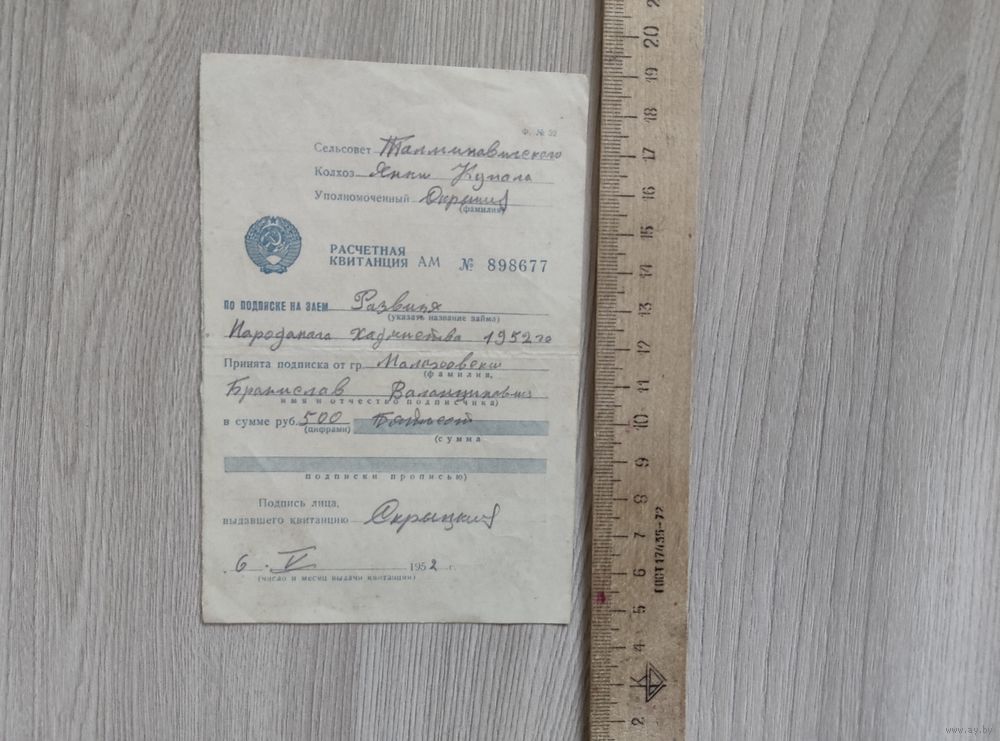 Ф. № 32
Сельсовет
Колхоз Янки Купала
Уполномоченный
(фамилия)
РАСЧЕТНАЯ
КВИТАНЦИЯ АМ № 898677
ПО ПОДПИСКЕ НА ЗАЕМ Развиця
(указать название займа)
Народнага 1952 го
Принята подписка от гр.
(фамилия,
Бранислав
имя и отчество подписчика)
в сумме руб. 500 Пятьсот
(цифрами)
(сумма
подписки прописью)
Подпись лица,
выдавшего квитанцию Скрыцкий
6. V 1952 г.
(число и месяц выдачи квитанции)
2 К 4 5 6 7 8 9 10 11 12 13 14 15 16 17 18 19 20 2
ГОСТ 17435-72
www.ay.by